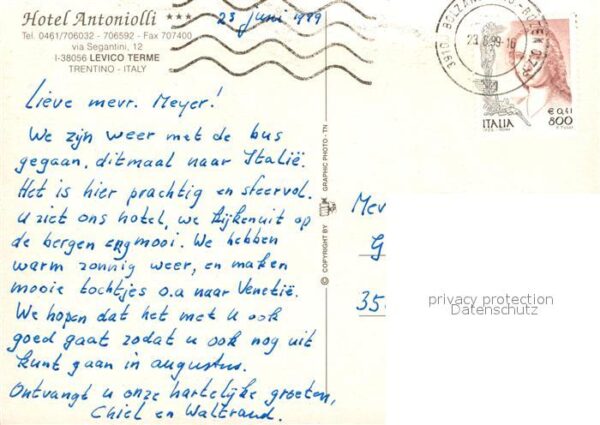 Hotel Antoniolli ***
Tel. 0461/706032 - 706592 - Fax 707400
via Segantini, 12
I-38056 LEVICO TERME
TRENTINO - ITALY
23 juni 1999
Lieve mevr. Meyer!
We zijn weer met de bus
gegaan, ditmaal naar Italië.
Het is hier prachtig en sfeervol.
U ziet ons hotel, we kijken uit op
de bergen erg mooi. We hebben
warm zonnig weer, en maken
mooie tochtjes o.a naar Venetië.
We hopen dat het met u ook
goed gaat zodat u ook nog uit
kunt gaan in augustus.
Ontvangt u onze hartelijke groeten,
Chiel en Waltraud.
© COPYRIGHT BY GRAPHIC PHOTO - TN
BOLZANO
ITALIA
€ 0,41
800
Mev
G
35
privacy protection
Datenschutz